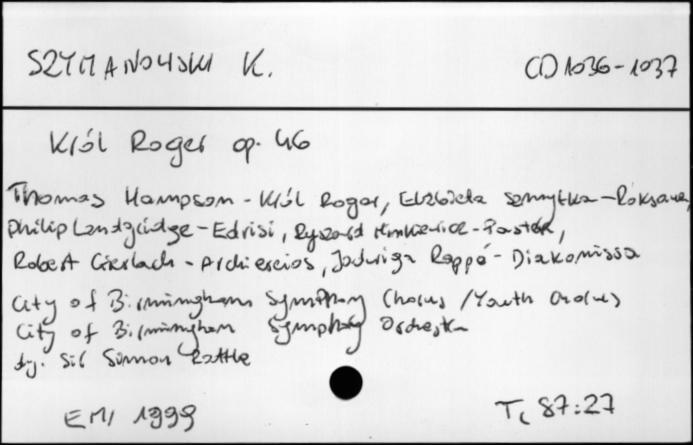 SZYMANOWSKI K.
CD 1036-1037
Król Roger op. 46
Thomas Hampson - Król Roger, Elżbieta Szmytka - Roksana,
Philip Landgridge - Edrisi, Ryszard Minkiewicz - Pasterz,
Robert Gierlach - Archiereios, Jadwiga Rappé - Diakonissa
City of Birmingham Symphony Chorus / Youth Chorus
City of Birmingham Symphony Orchestra
dyr. Sir Simon Rattle
EMI 1999
Tc 87:27